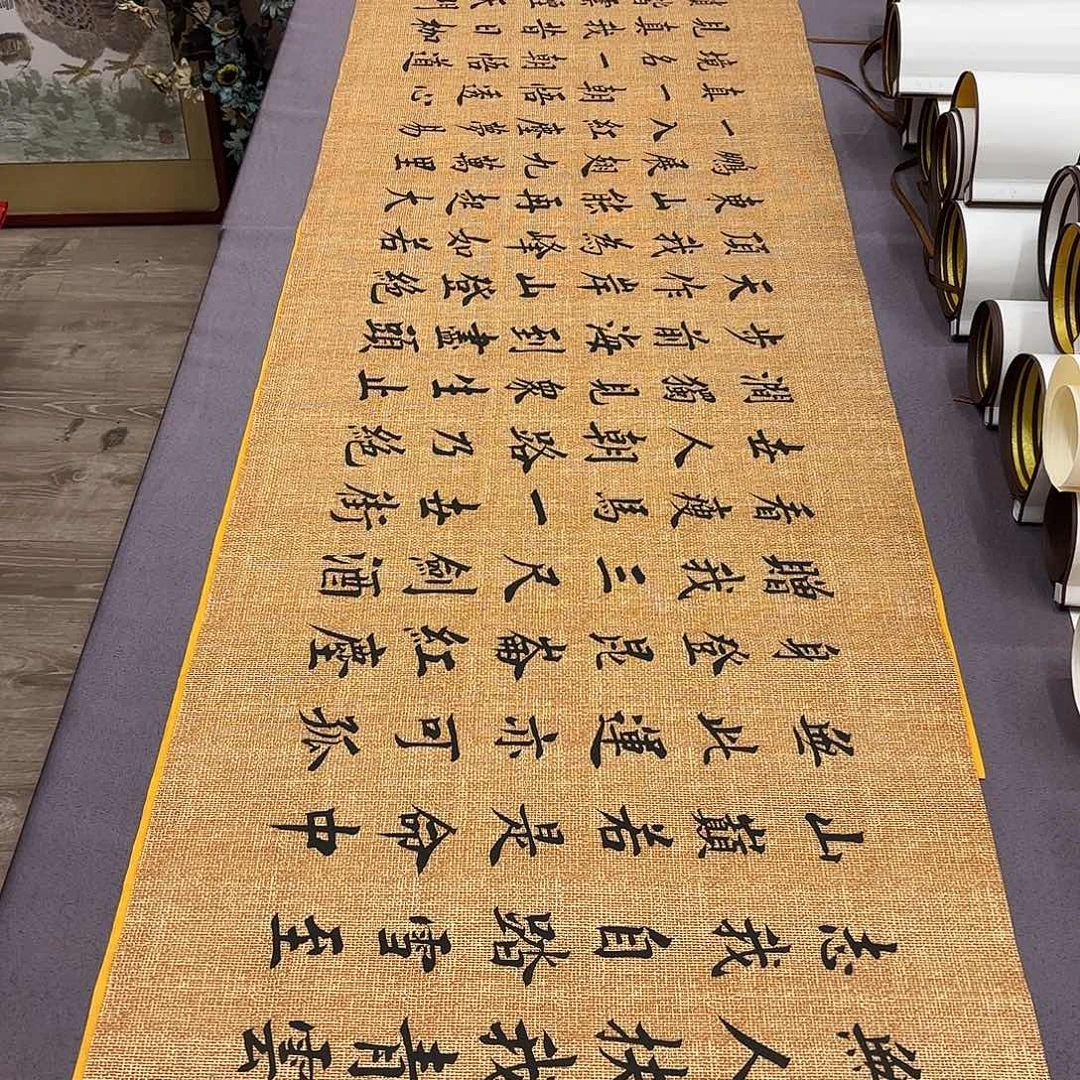 無人扶我青雲
志我自踏雪至
山巔若是命中
無此運亦可孤
身登昆崙紅塵
贈我三尺劍酒
看瘦馬一世街
世人朝路乃絕
澗獨見衆生止
步前海到盡頭
天作岸山登絕
頂我為峰如若
東山能再起大
鵬展翅九萬里
一入紅塵夢易
真一朝悟透心
境名一朝悟道
見真我昔日枷